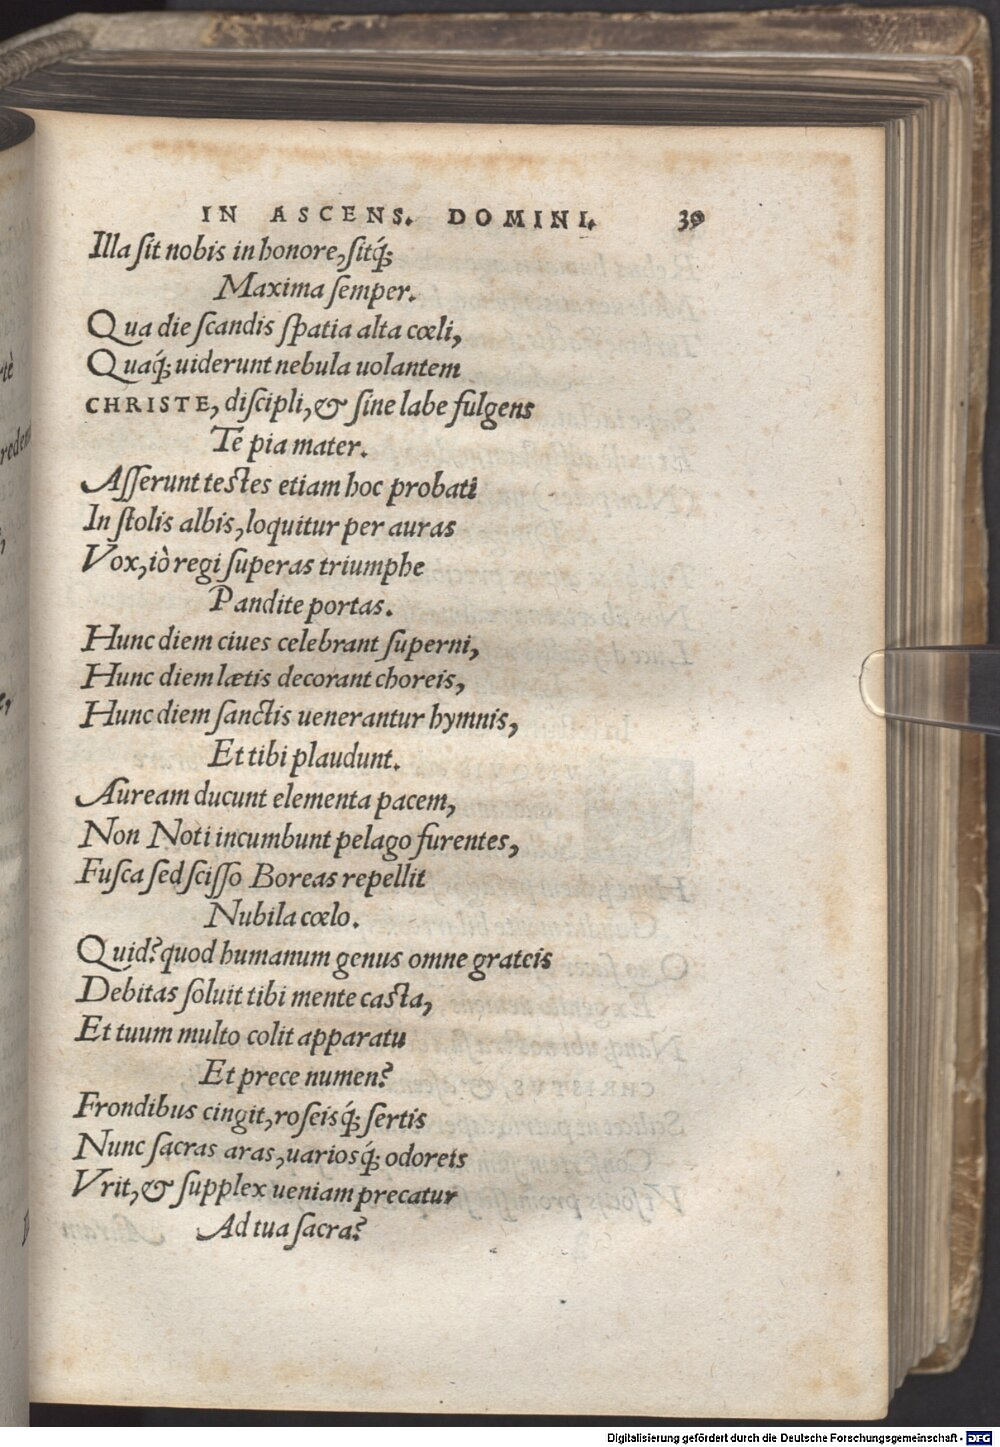 IN ASCENS. DOMINI. 39
Illa ſit nobis in honore, ſitq́;
Maxima ſemper.
Qua die ſcandis ſpatia alta cœli,
Quaq́; uiderunt nebula uolantem
CHRISTE, diſcipli, & ſine labe fulgens
Te pia mater.
Aſſerunt teſtes etiam hoc probati
In ſtolis albis, loquitur per auras
Vox, iò regi ſuperas triumphe
Pandite portas.
Hunc diem ciues celebrant ſuperni,
Hunc diem lætis decorant choreis,
Hunc diem ſanctis uenerantur hymnis,
Et tibi plaudunt.
Auream ducunt elementa pacem,
Non Noti incumbunt pelago furentes,
Fuſca ſed sciſſo Boreas repellit
Nubila cœlo.
Quid? quod humanum genus omne grateis
Debitas ſoluit tibi mente caſta,
Et tuum multo colit apparatu
Et prece numen?
Frondibus cingit, roſeisq́; ſertis
Nunc ſacras aras, uariosq́; odoreis
Vrit, & ſupplex ueniam precatur
Ad tua ſacra?
Digitalisierung gefördert durch die Deutsche Forschungsgemeinschaft - DFG